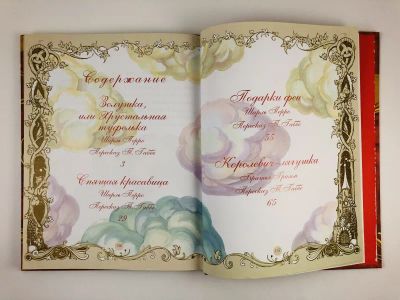 Содержание
Золушка,
или Хрустальная
туфелька
Шарль Перро
Пересказ Т. Габбе
3
Спящая красавица
Шарль Перро
Пересказ Т. Габбе
29
Подарки феи
Шарль Перро
Пересказ Т. Габбе
55
Королевич-лягушка
Братья Гримм
Пересказ Т. Габбе
65